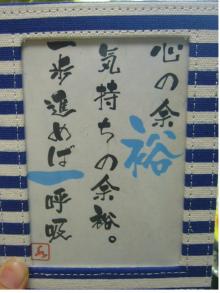 心の余裕
気持ちの余裕。
一歩進めば一呼吸